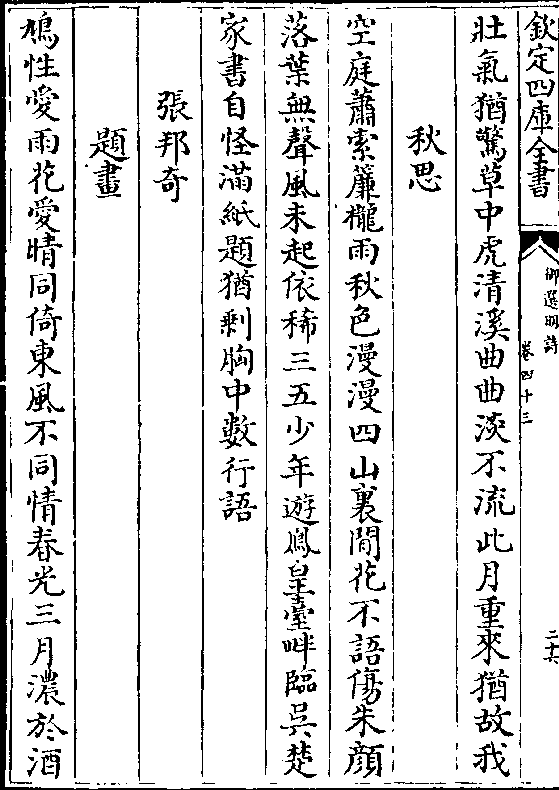 欽定四庫全書
御選明詩
卷四十三
二十六
壯氣猶驚草中虎清溪曲曲淡不流此月重來猶故我
秋思
空庭蕭索簾櫳雨秋色漫漫四山裏閒花不語傷朱顔
落葉無聲風未起依稀三五少年遊鳳皇臺畔臨吳楚
家書自怪滿紙題猶剩胸中數行語
張邦奇
題畫
鳩性愛雨花愛晴同倚東風不同情春光三月濃於酒